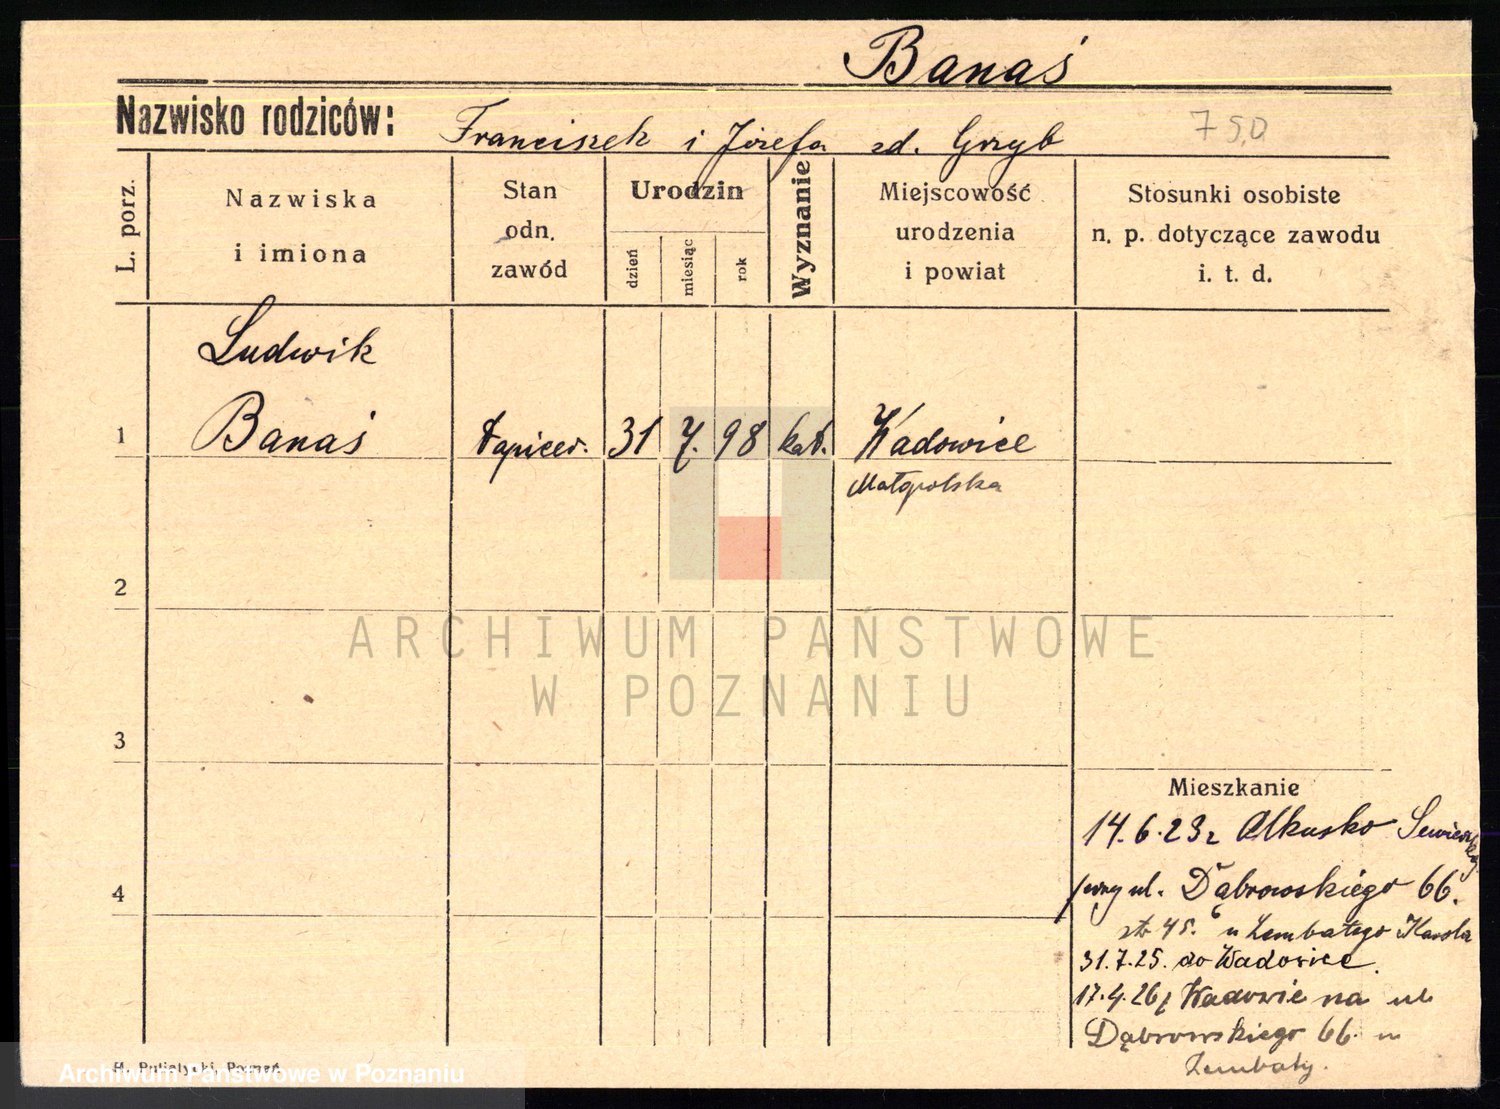 Banaś
Nazwisko rodziców: Franciszek i Józefa zd. Grzyb
L. porz.
Nazwiska
i imiona
Stan
odn.
zawód
Urodzin
dzień
miesiąc
rok
Wyznanie
Miejscowość
urodzenia
i powiat
Stosunki osobiste
n. p. dotyczące zawodu
i. t. d.
Ludwik
1 Banaś tapicer. 31 7. 98 kat. Wadowice
Małopolska
2
ARCHIWUM PAŃSTWOWE
W POZNANIU
3
Mieszkanie
14.6.23 z Olkusko
4 ul. Dąbrowskiego 66.
u Zembatego Karola
31.7.25. do Wadowice.
17.4.26 z Wadowic na ul
Dąbrowskiego 66. u
Zembaty.
Poznań
Archiwum Państwowe w Poznaniu